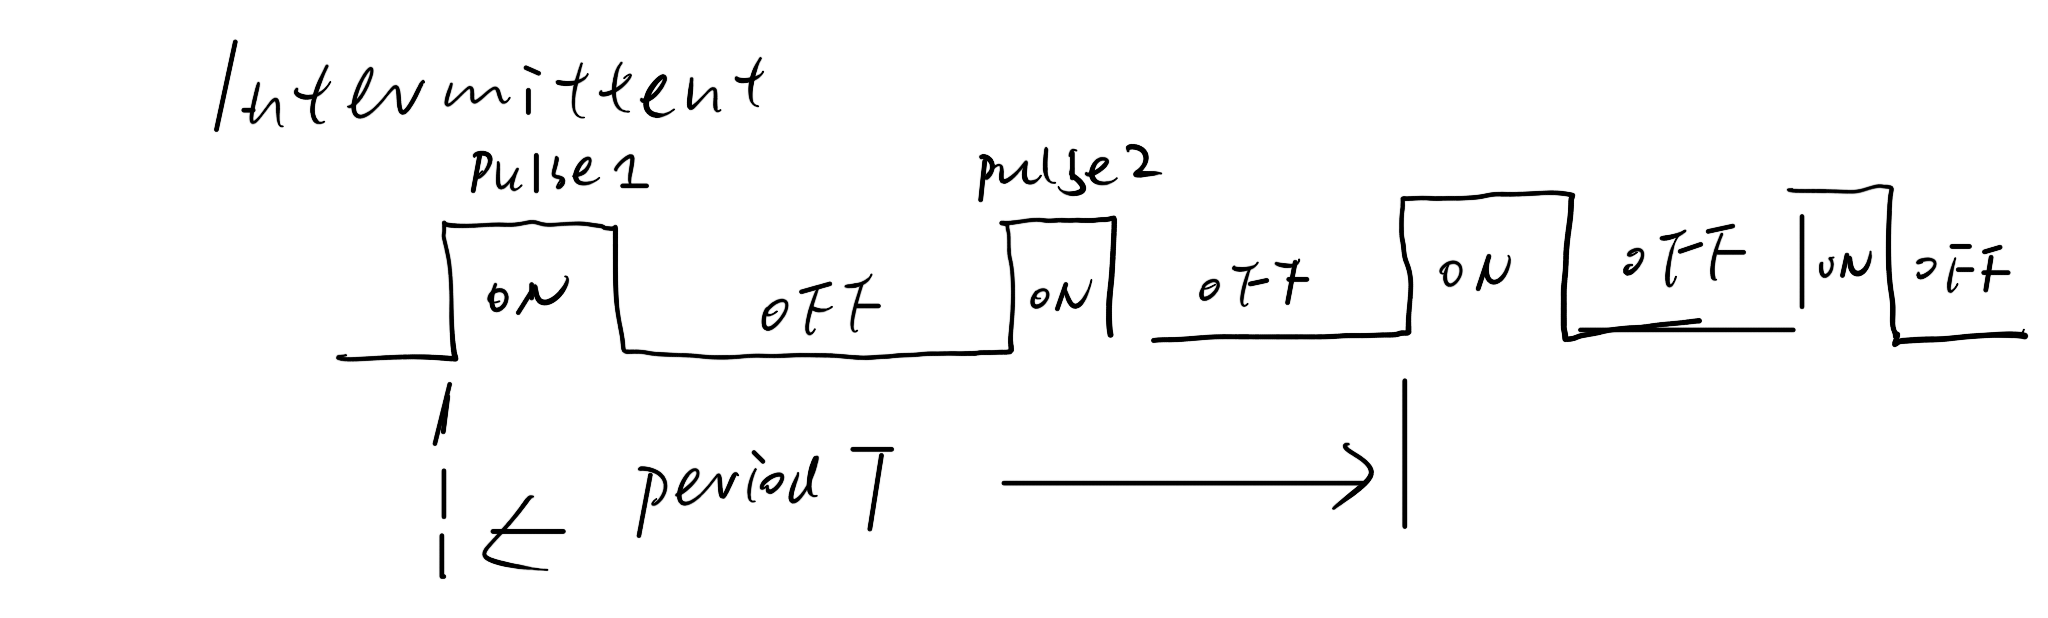 Intermittent
Pulse1 pulse2
ON OFF ON OFF ON OFF ON OFF
period T